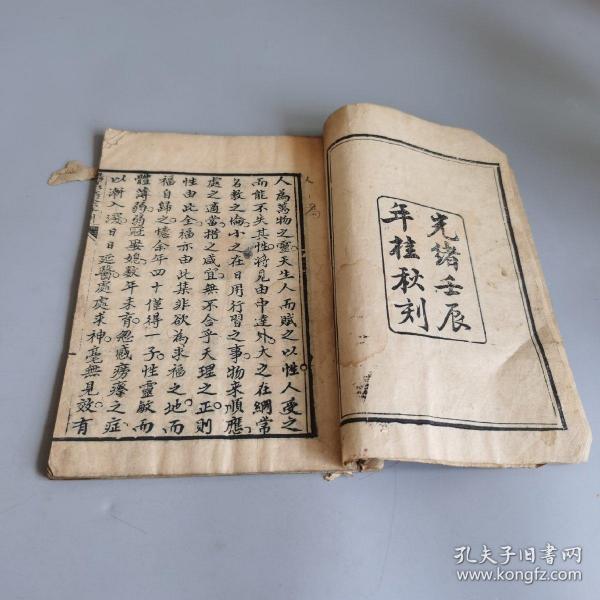 光緒壬辰
年桂秋刻
人為萬物之靈天生人而賦之以性人受之
而能不失其性將見由中達外大之在綱常
名教之倫小之在日用行習之事物來順應
處之適當措之咸宜無不合乎天理之正則
性由此全福亦由此集非欲為求福之地而
福自歸之憶余年四十僅得一子性靈敏而
體薄弱弱冠娶媳數年未育忽感癆瘵之症
以漸入深日日延醫處處求神毫無見效有
孔夫子旧书网
www.kongfz.com